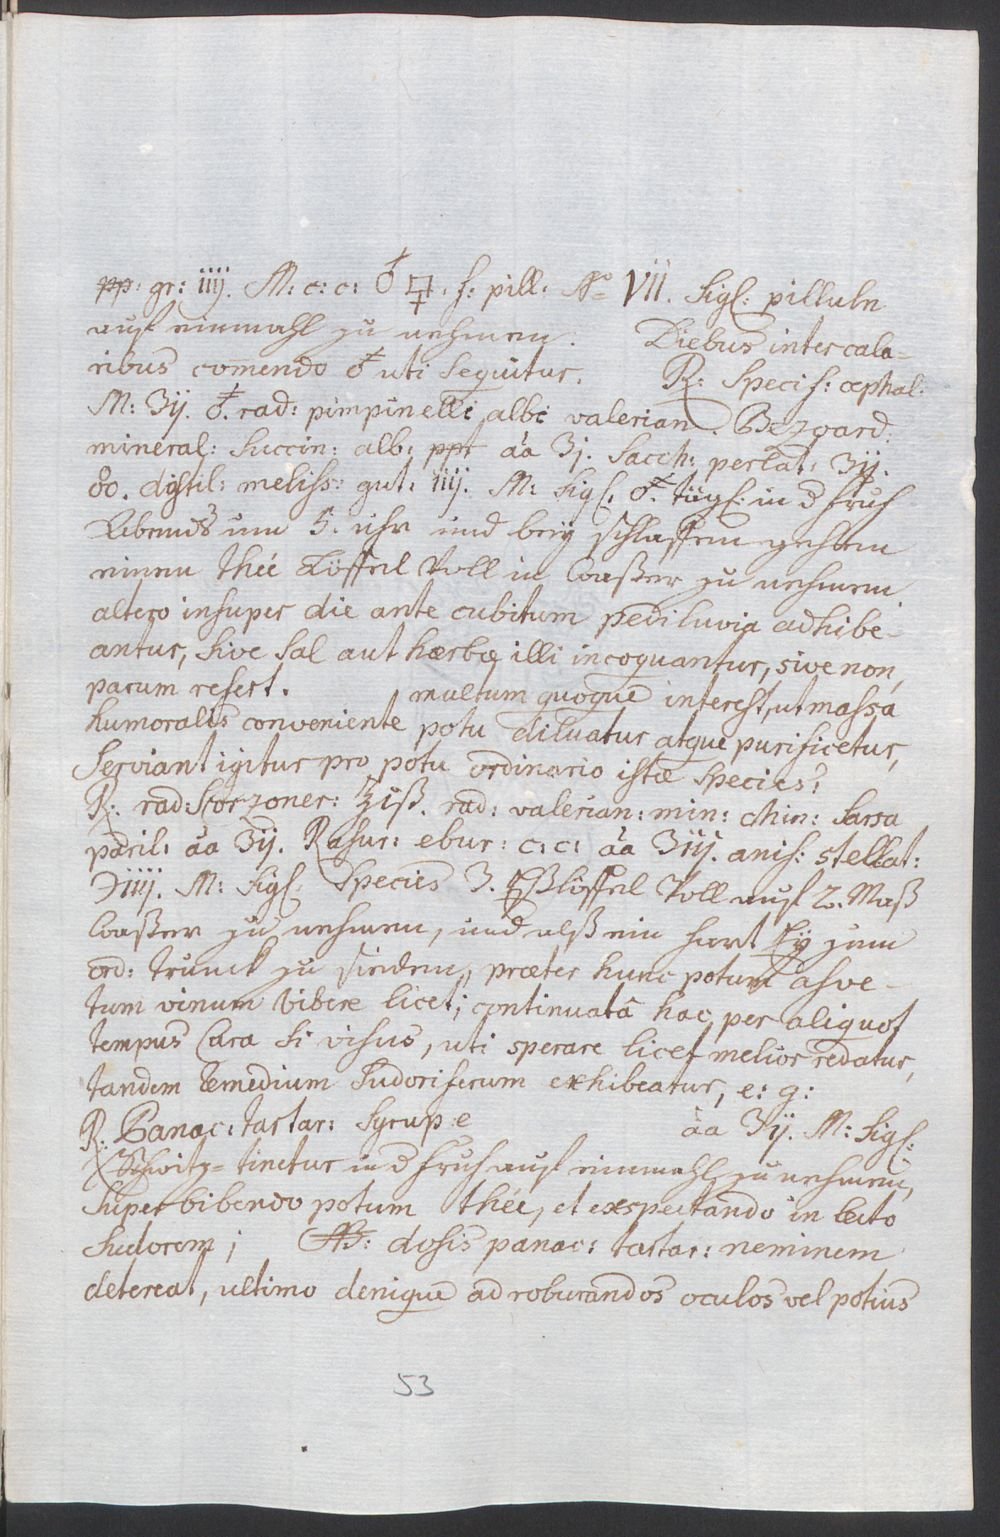 pp: gr: iiij. M: c: c: ♁ 🜿. f: pill: No VII. Sigl: pilluln
auf einmahl zu nehmen. Diebus intercala-
ribus comendo ♁ uti sequitur. R: Specif: cephal:
M: ʒij. ♁. rad: pimpinelli albi valerian. Bezoard:
mineral: Succin: alb: ppt āa ʒj. Sacch: perlat: ʒij.
distil: meliss: gut: iiij. M: Sigl. ♁. tägl: in d fruh
Abends um 5. uhr und beÿ schlaffen gehen
einen theé Löffel Voll in Waßer zu nehmen
altero insuper die ante cubitum pediluvia adhibe-
antur, sive sal aut herbæ illi incoquantur, sive non,
parum refert. multum quoque interest, ut massa
humoralis conveniente potu diluatur atque purificetur,
Serviant igitur pro potu ordinario istæ Species:
R: rad: Scorzoner: ℥iß. rad: valerian: min: chin: Sarsa
paril: āa ʒij. Rasur: ebur: c: c: āa ʒiij. anis: stellat:
℈iiij. M: Sigl. Species 3. Eßlöffel Voll auf 2. Maß
Waßer zu nehmen, und alß ein hart Eÿ zum
ord: trunck zu sieden, præter hunc potum asve-
tum vinum bibere licet; continuatâ hac per aliquot
tempus Cura si visus, uti sperare licet melior redatur,
tandem remedium Sudoriferum exhibeatur, e: g:
R: Panac: tartar: Syrup: e āa ʒij. M: Sigl:
Schwitz-tinctur in d fruh auf einmahl zu nehmen,
superbibendo potum theé, et exspectando in lecto
sudorem; NB: dosis panac: tartar: neminem
detereat, ultimo denique ad roburandos oculos vel potius
53